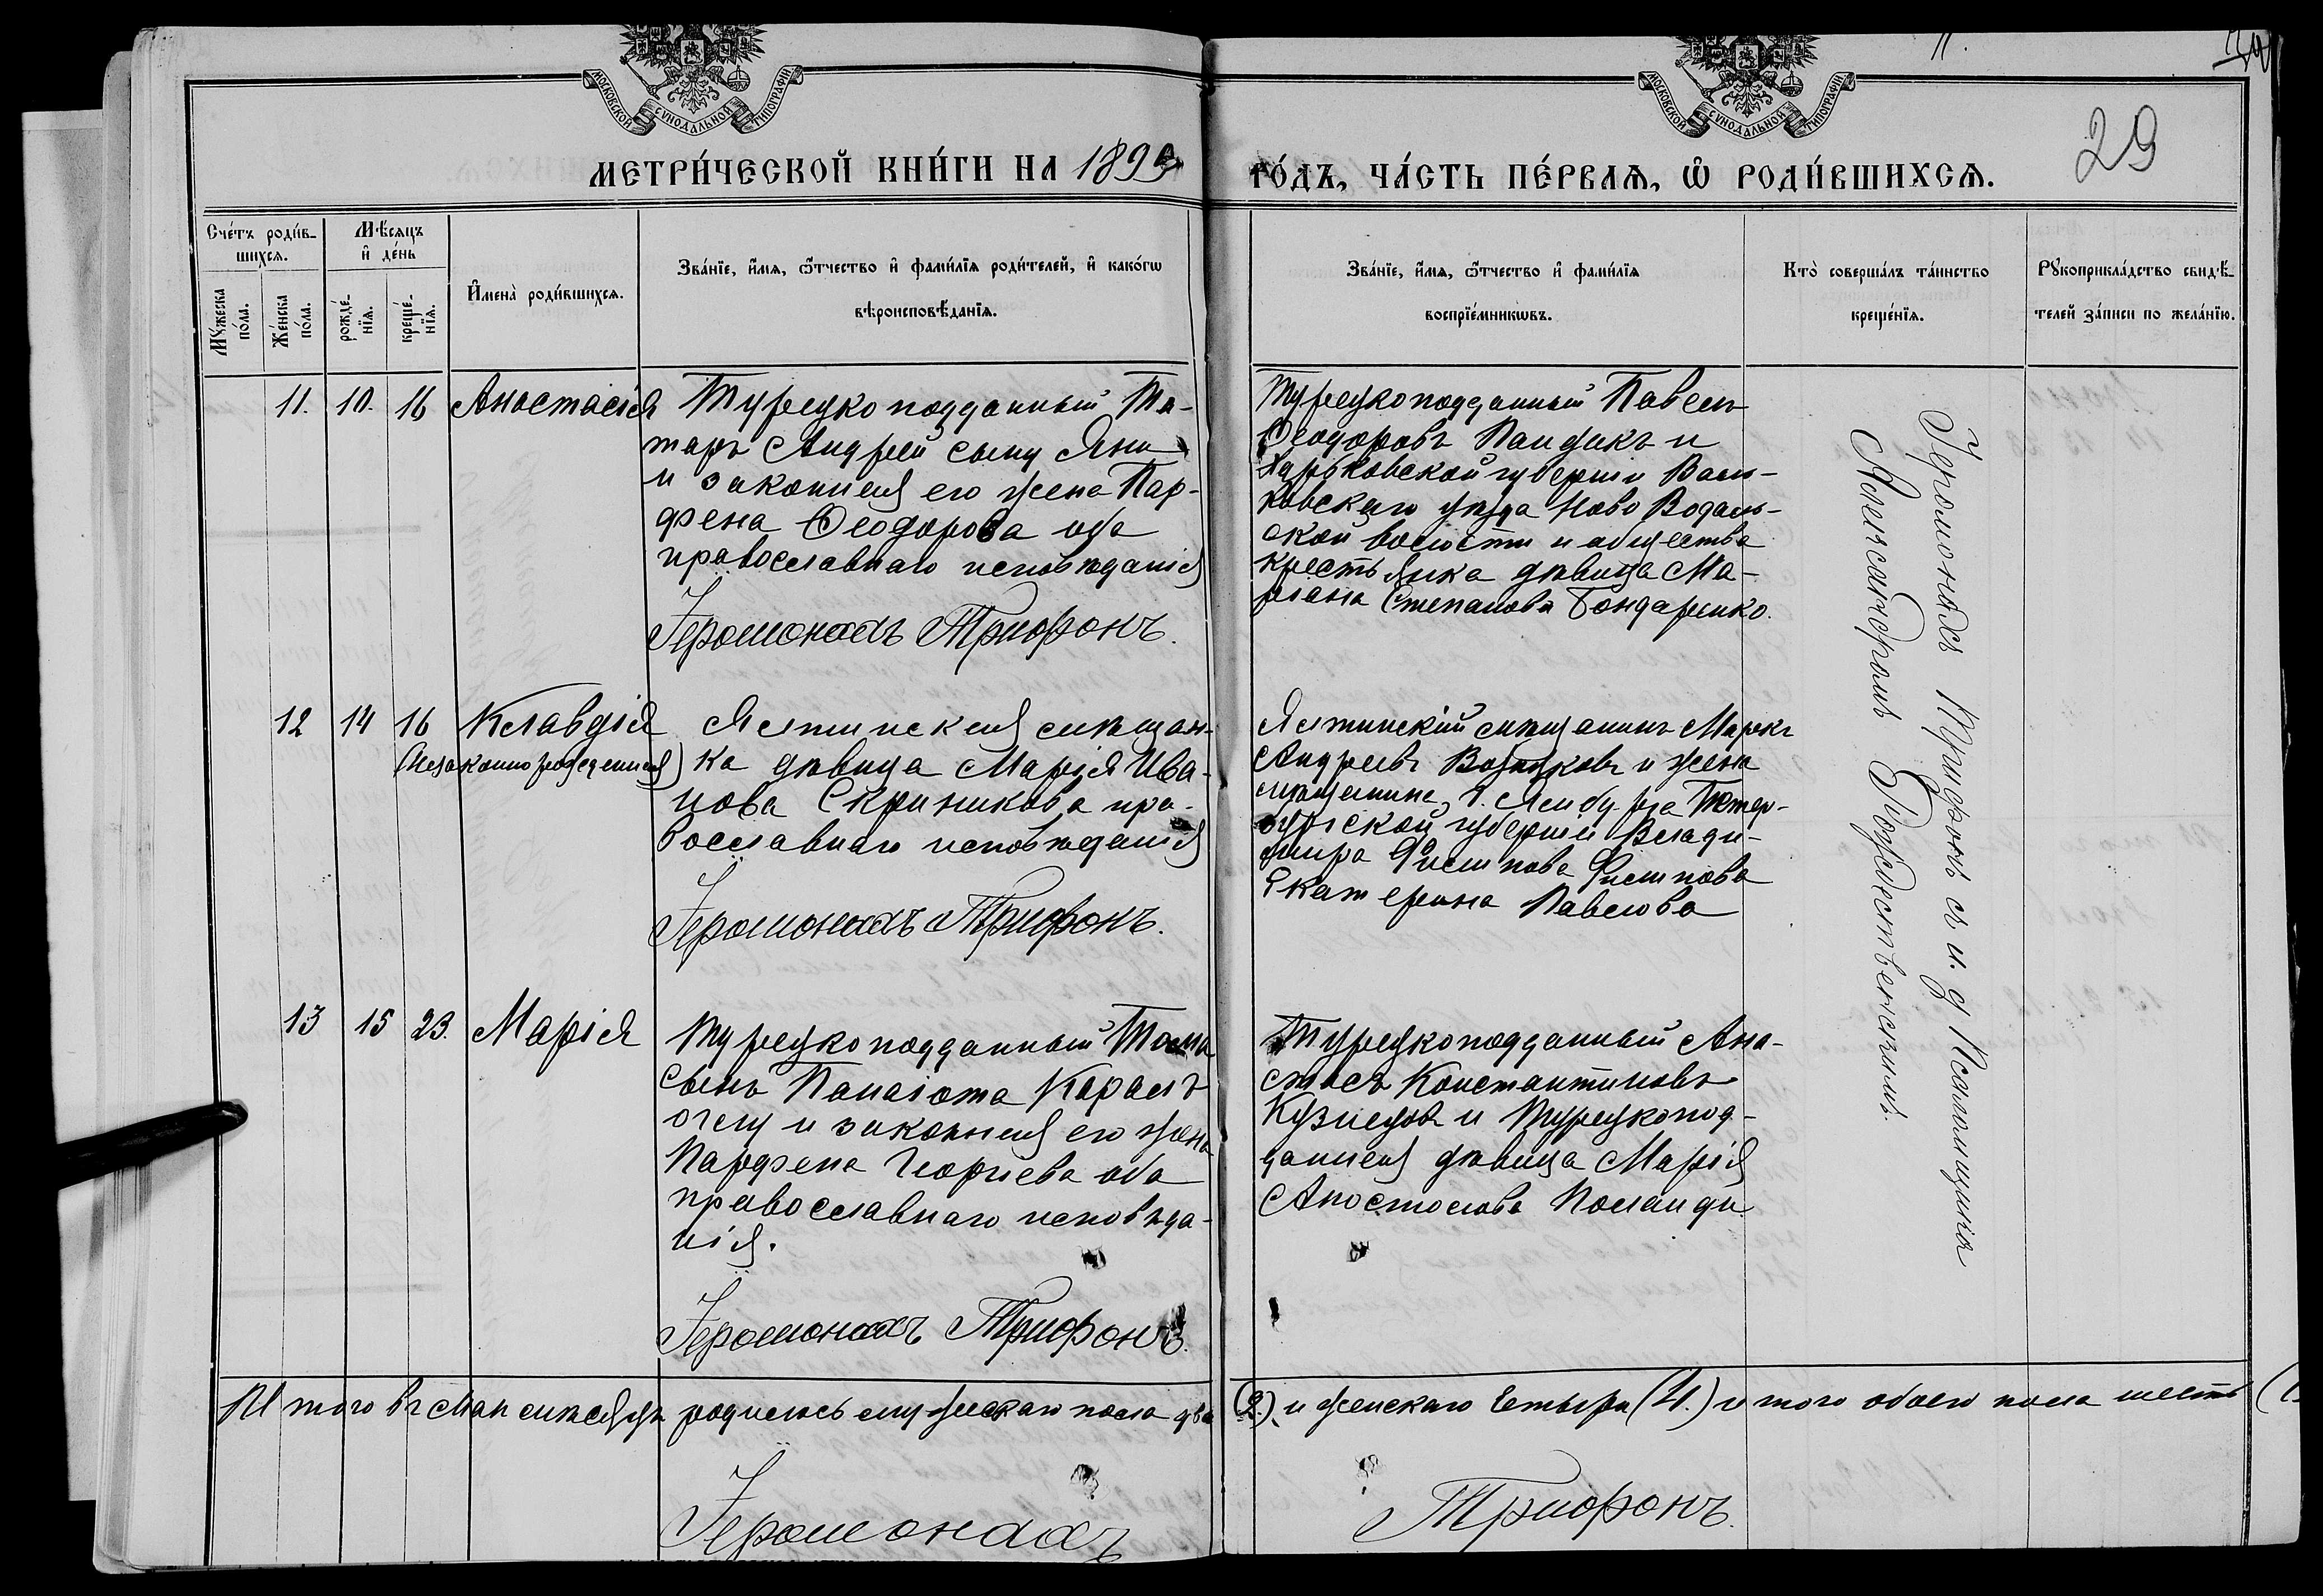 МОСКОВСКОЙ СѴНОДАЛЬНОЙ ТИПОГРАФІИ
МОСКОВСКОЙ СѴНОДАЛЬНОЙ ТИПОГРАФІИ
29
МЕТРИ́ЧЕСКОЙ КНИ́ГИ НА 189
ГО́ДЪ, ЧА́СТЬ ПЕ́РВАѦ, Ѡ҆ РОДИ́ВШИХСѦ.
Сче́тъ роди́в-
шихсѧ.
Мѣ́сѧцъ
и҆ де́нь
Мꙋ́жеска по́ла.
Же́нска по́ла.
рожде́-
нїѧ.
креще́-
нїѧ.
И҆мена̀ роди́вшихсѧ.
Зва́нїе, и҆́мѧ, ѻ҆́тчество и҆ фами́лїѧ роди́телей, и҆ како́гѡ
вѣроисповѣ́данїѧ.
Зва́нїе, и҆́мѧ, ѻ҆́тчество и҆ фами́лїѧ
воспрїе́мникѡвъ.
Кто̀ соверша́лъ та́инство
креще́нїѧ.
Рꙋкоприкла́дство свидѣ́-
телей за́писи по жела́нїю.
11. 10. 16 Анастасія
Турецкоподданный Та-
таръ Андрей сыну Яни
и законная его жена Пар-
фена Ѳеодорова оба
православнаго исповѣданія
Іеромонахъ Трифонъ.
Турецкоподданный Павелъ
Ѳеодоровъ и
Харьковской губерніи Валк-
ковскаго уѣзда Ново Водолаж-
ской волости и общества
крестьянка дѣвица Ма-
ріана Степанова Бондаренко.
12 14 16 Клавдія
(незаконнорожденная)
Ялтинская мѣщан-
ка дѣвица Марія Ива-
нова Скрипникова пра-
вославнаго исповѣданія
Іеромонахъ Трифонъ.
Ялтинскій мѣщанинъ Маркъ
Андреевъ и жена
мѣщанина г. Ямбурга Петер-
бургской губерніи Влади-
мира Филипова Филипова
Екатерина Павлова
13 15 23. Марія
Турецкоподданный
сынъ Панаіота
и законная его жена
Парфена Георгіева оба
православнаго исповѣда-
нія.
Іеромонахъ Трифонъ.
Турецкоподданный Ана-
стасъ Константиновъ
Кузнецовъ и Турецкопод-
данная дѣвица Марія
Апостолова
Іеромонахъ Трифонъ съ и. д. Псаломщика
Александромъ Божественскимъ.
Итого въ Маѣ мѣсяцѣ родилось мужскаго пола два
(2) и женскаго четыре (4.) итого обоего пола шесть
Іеромонахъ
Трифонъ.